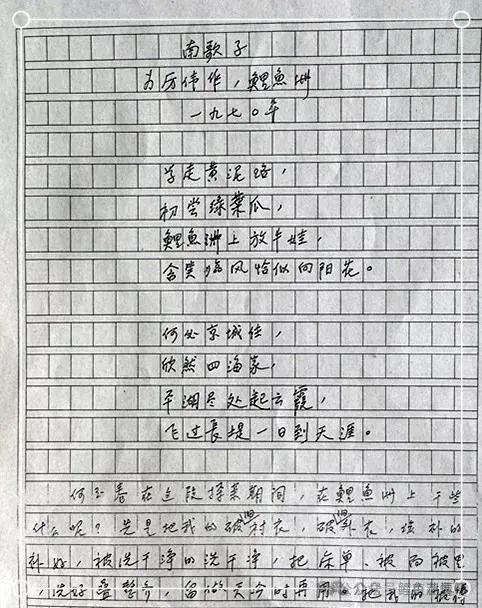 南歌子
为厉伟作，鲤鱼洲
一九七〇年
学走黄泥路，
初尝绿菜瓜，
鲤鱼洲上放牛娃，
含笑临风恰似向阳花。
何处京城住，
欣然四海家，
平湖尽处起云霞，
飞过长堤一日到天涯。
何玉春在这段探亲期间，在鲤鱼洲上干些
什么呢？先是把我的破衬衣，破外衣，该补的
补好，被洗干净的洗干净，把床单、被面被里
，洗好叠整齐，留给天冷时再用。把我的